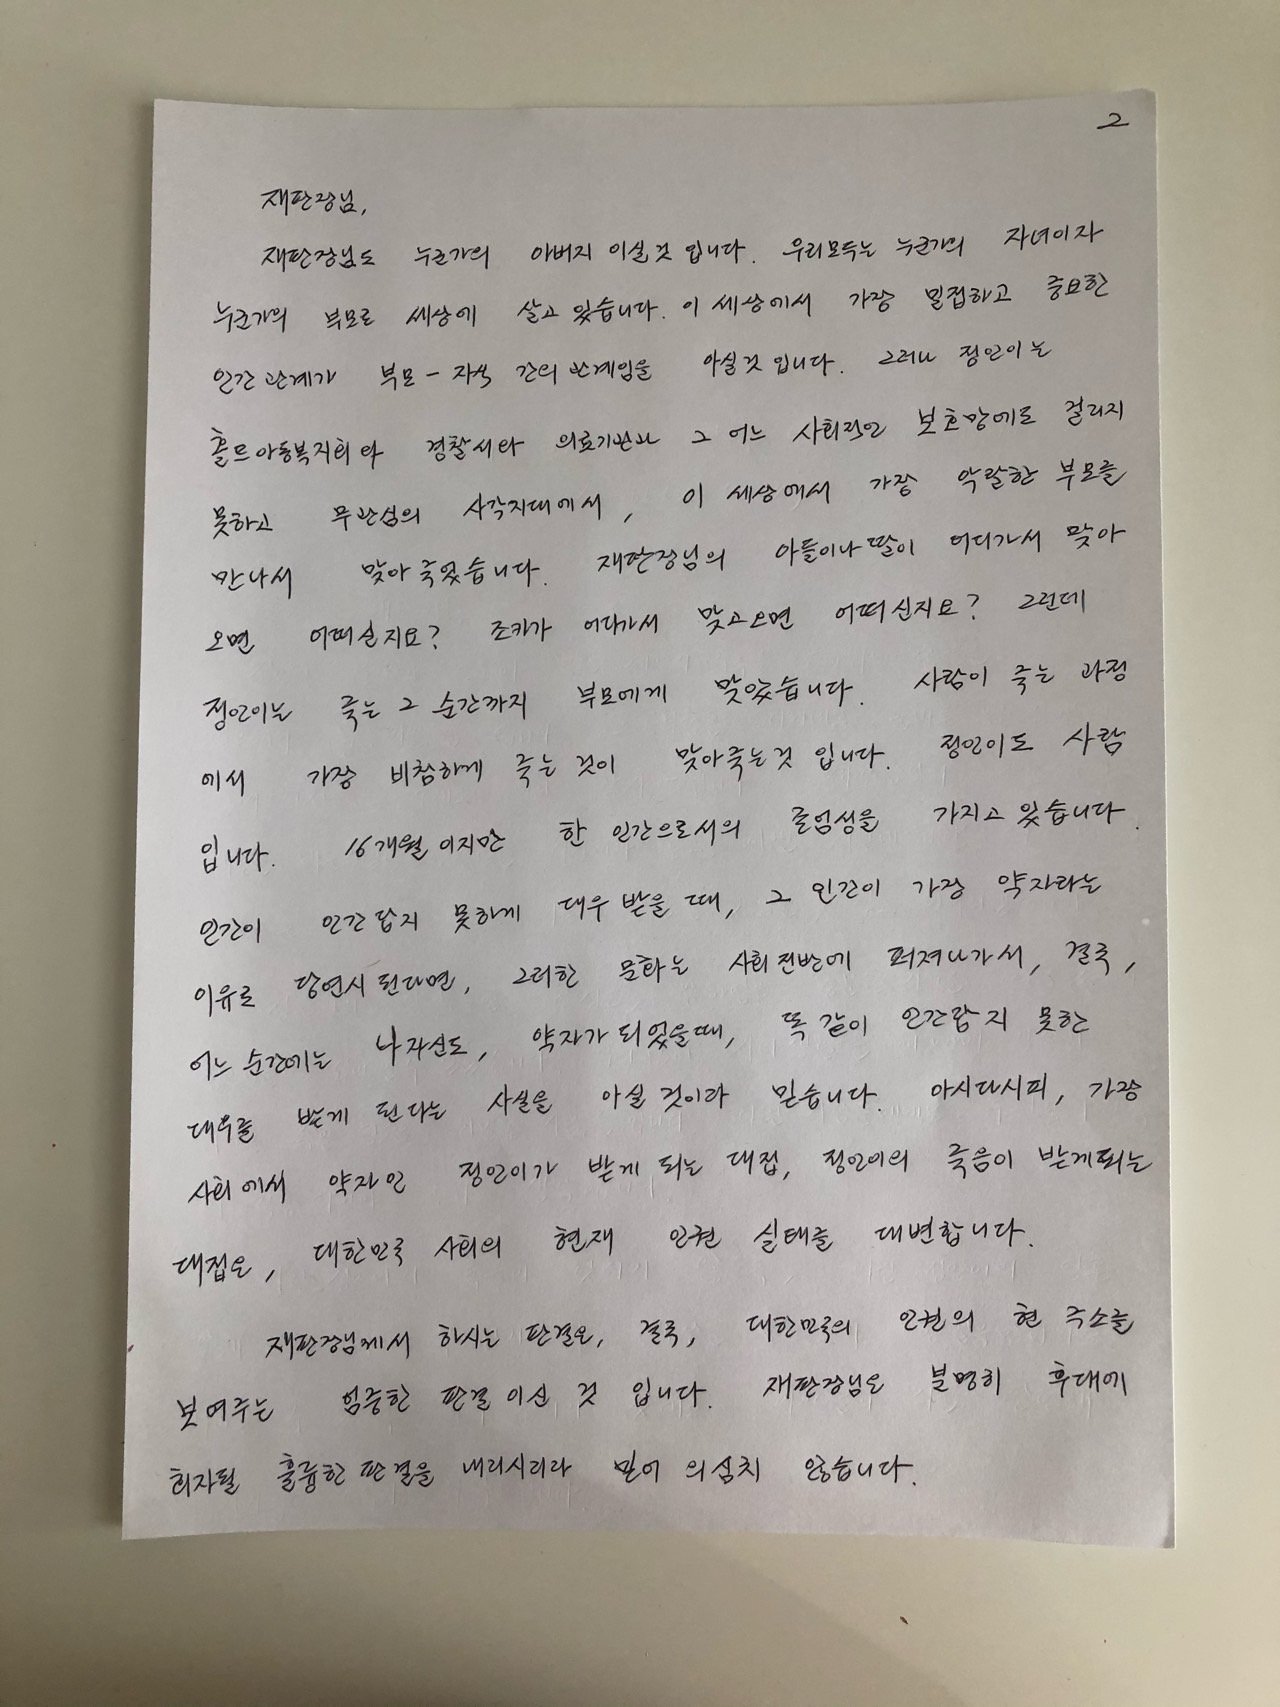 2
재판장님,
재판장님도 누군가의 아버지 이실 것 입니다. 우리모두는 누군가의 자녀이자
누군가의 부모로 세상에 살고 있습니다. 이 세상에서 가장 밀접하고 중요한
인간관계가 부모-자식 간의 관계임을 아실 것 입니다. 그러나 정인이는
홀트아동복지회와 경찰서와 의료기관과 그 어느 사회적인 보호망에도 걸리지
못하고 무관심의 사각지대에서, 이 세상에서 가장 악랄한 부모를
만나서 맞아 죽었습니다. 재판장님의 아들이나 딸이 어디가서 맞아
오면 어떠실지요? 조카가 어디가서 맞고오면 어떠신지요? 그런데
정인이는 죽는 그 순간까지 부모에게 맞았습니다. 사람이 죽는 과정
에서 가장 비참하게 죽는 것이 맞아죽는것 입니다. 정인이도 사람
입니다. 16개월 이지만 한 인간으로서의 존엄성을 가지고 있습니다.
인간이 인간답지 못하게 대우 받을 때, 그 인간이 가장 약자라는
이유로 당연시 된다면, 그러한 문화는 사회전반에 퍼져나가서, 결국,
어느 순간에는 나자신도, 약자가 되었을때, 똑같이 인간답지 못한
대우를 받게 된다는 사실을 아실 것이라 믿습니다. 아시다시피, 가장
사회에서 약자인 정인이가 받게 되는 대접, 정인이의 죽음이 받게되는
대접은, 대한민국 사회의 현재 인권 실태를 대변합니다.
재판장님께서 하시는 판결은, 결국, 대한민국의 인권의 현 주소를
보여주는 엄중한 판결 이신 것 입니다. 재판장님은 분명히 후대에
회자될 훌륭한 판결을 내리시리라 믿어 의심치 않습니다.